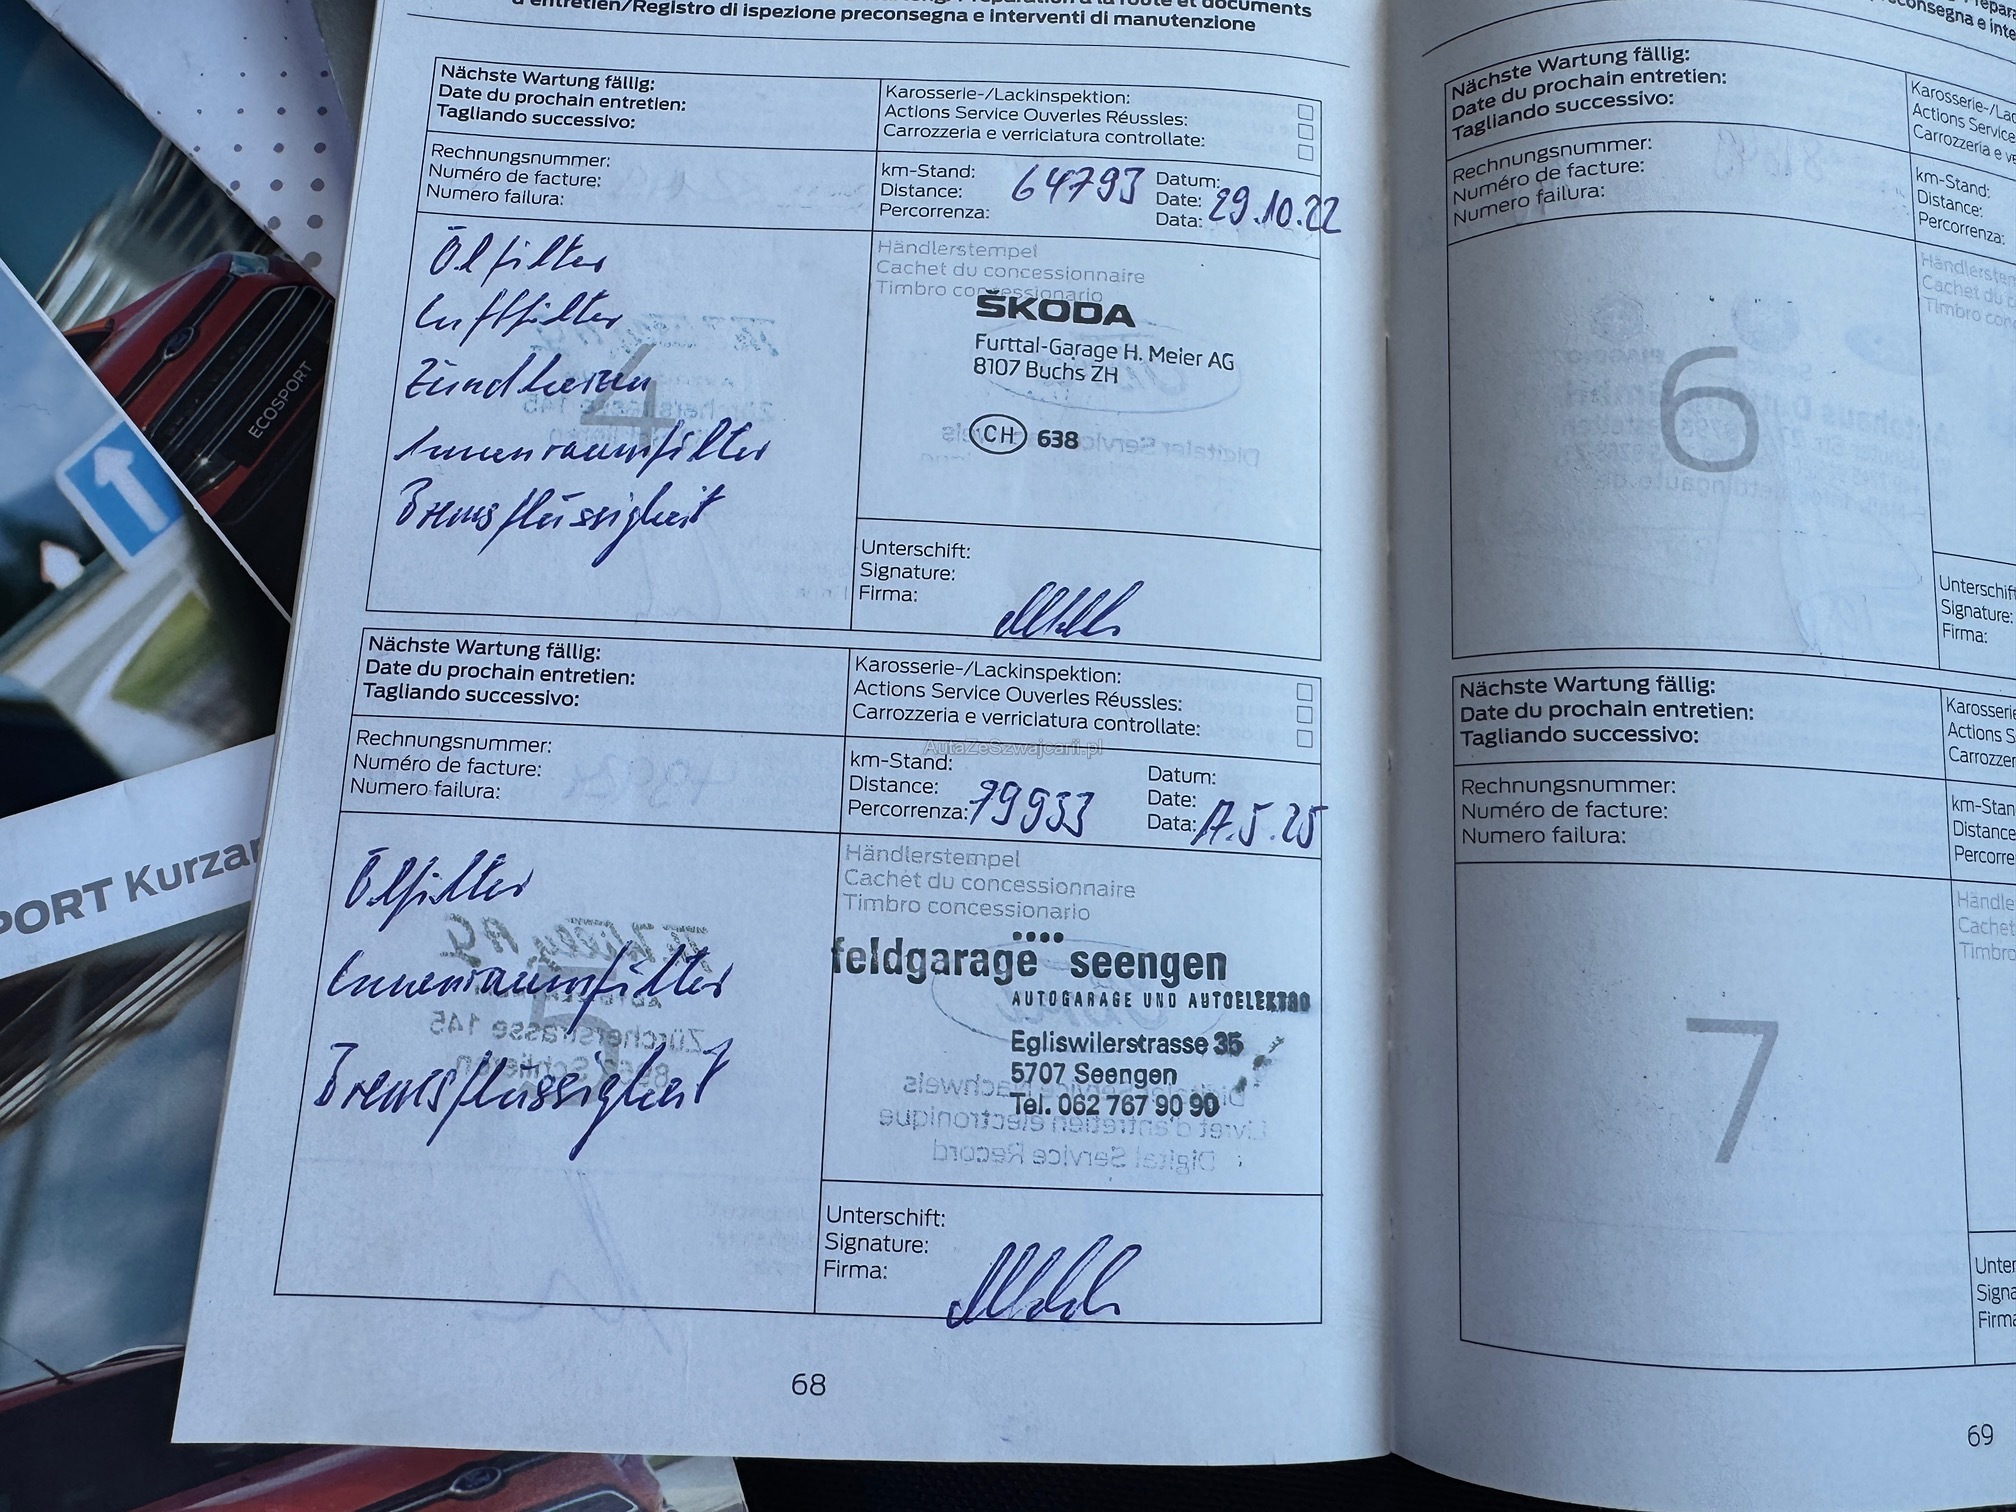 d'entretien/Registro di ispezione preconsegna e interventi di manutenzione
Nächste Wartung fällig:
Date du prochain entretien:
Tagliando successivo:
Karosserie-/Lackinspektion:
Actions Service Ouverles Réussles:
Carrozzeria e verriciatura controllate:
Rechnungsnummer:
Numéro de facture:
Numero failura:
km-Stand:
Distance:
Percorrenza:
64793
Datum:
Date:
Data:
29.10.22
Ölfilter
Luftfilter
Zündkerzen
Innenraumfilter
Bremsflüssigkeit
4
Händlerstempel
Cachet du concessionnaire
Timbro concessionario
ŠKODA
Furttal-Garage H. Meier AG
8107 Buchs ZH
CH 638
Unterschift:
Signature:
Firma:
Nächste Wartung fällig:
Date du prochain entretien:
Tagliando successivo:
Karosserie-/Lackinspektion:
Actions Service Ouverles Réussles:
Carrozzeria e verriciatura controllate:
AutaZeSzwajcarii.pl
Rechnungsnummer:
Numéro de facture:
Numero failura:
km-Stand:
Distance:
Percorrenza:
79933
Datum:
Date:
Data:
17.5.25
Ölfilter
Innenraumfilter
Bremsflüssigkeit
5
Händlerstempel
Cachet du concessionnaire
Timbro concessionario
feldgarage seengen
AUTOGARAGE UND AUTOELEKTRO
Egliswilerstrasse 35
5707 Seengen
Tel. 062 767 90 90
Unterschift:
Signature:
Firma:
68
Nächste Wartung fällig:
Date du prochain entretien:
Tagliando successivo:
Karosserie-/
Actions Service
Carrozzeria e
Rechnungsnummer:
Numéro de facture:
Numero failura:
km-Stand:
Distance:
Percorrenza:
6
Unterschift
Signature:
Firma:
Nächste Wartung fällig:
Date du prochain entretien:
Tagliando successivo:
Karosserie
Actions S
Carrozzer
Rechnungsnummer:
Numéro de facture:
Numero failura:
km-Stan
Distance
Percorre
7
Händle
Cachet
Timbro
Unter
Signa
Firma
69
ECOSPORT
PORT Kurzan